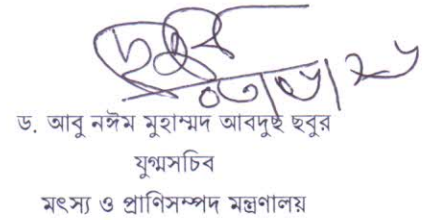 ড. আবু নঈম মুহাম্মদ আবদুছ ছবুর
যুগ্মসচিব
মৎস্য ও প্রাণিসম্পদ মন্ত্রণালয়